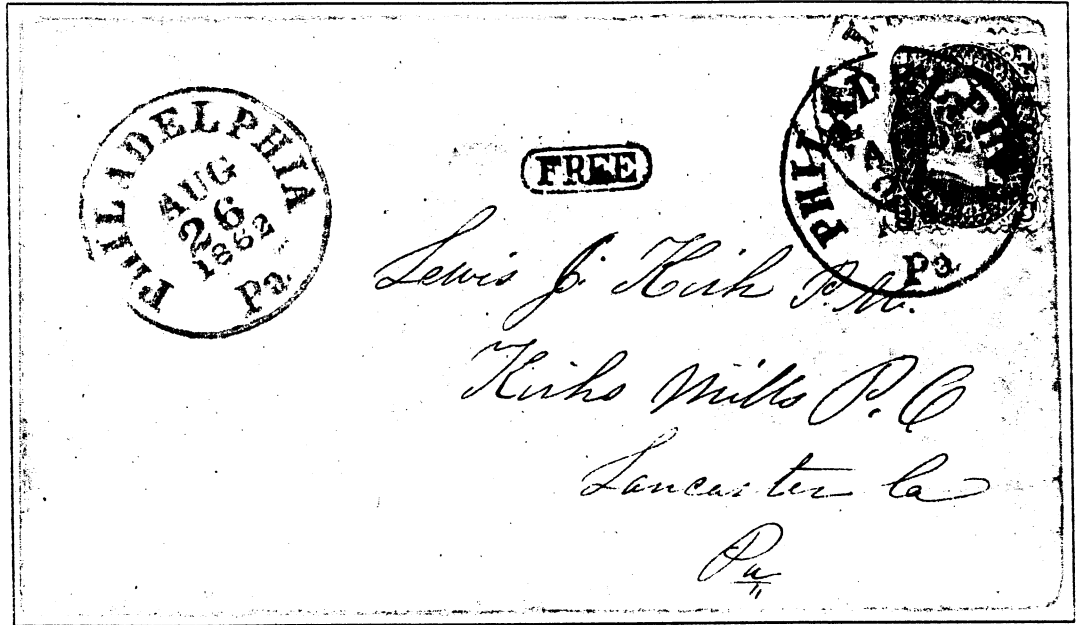 PHILADELPHIA
AUG
26
1862
Pa
FREE
PHILADELPHIA
Pa
Lewis J. Kirk P.M.
Kirks Mills P. O
Lancaster Co
Pa